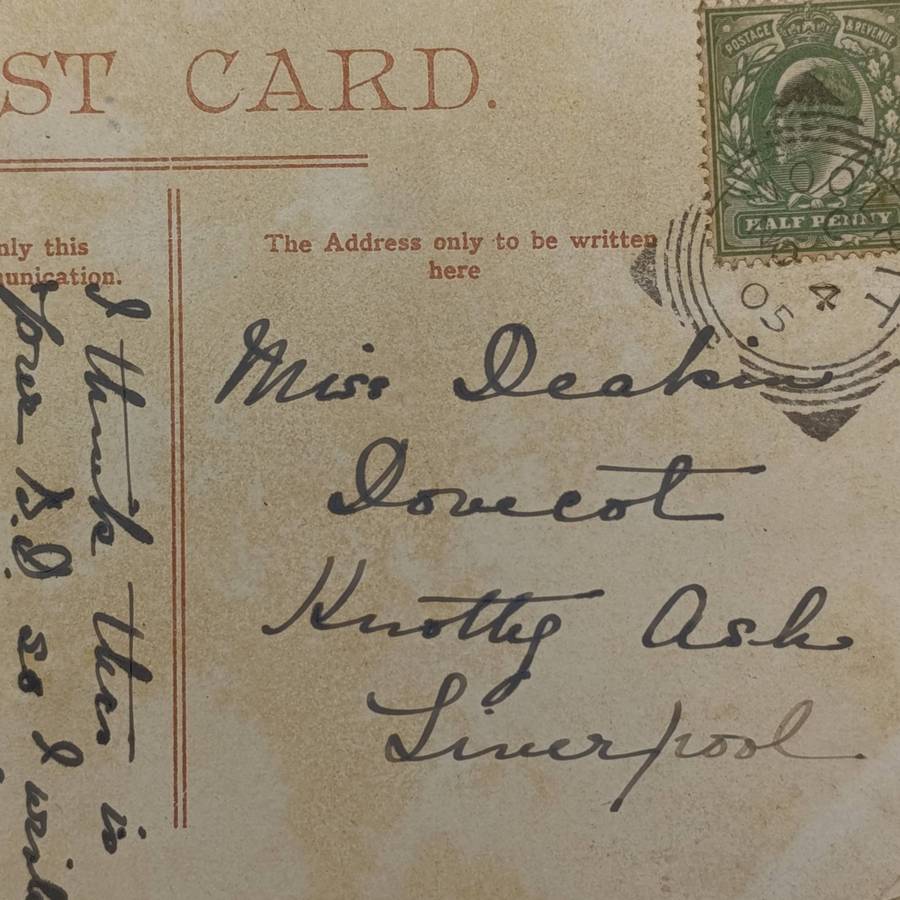 ST CARD.
POSTAGE & REVENUE
HALF PENNY
nly this
unication.
The Address only to be written
here
4
05
Miss Deakin
Dovecot
Knotty Ash
Liverpool
I think this is
your B.D. so I